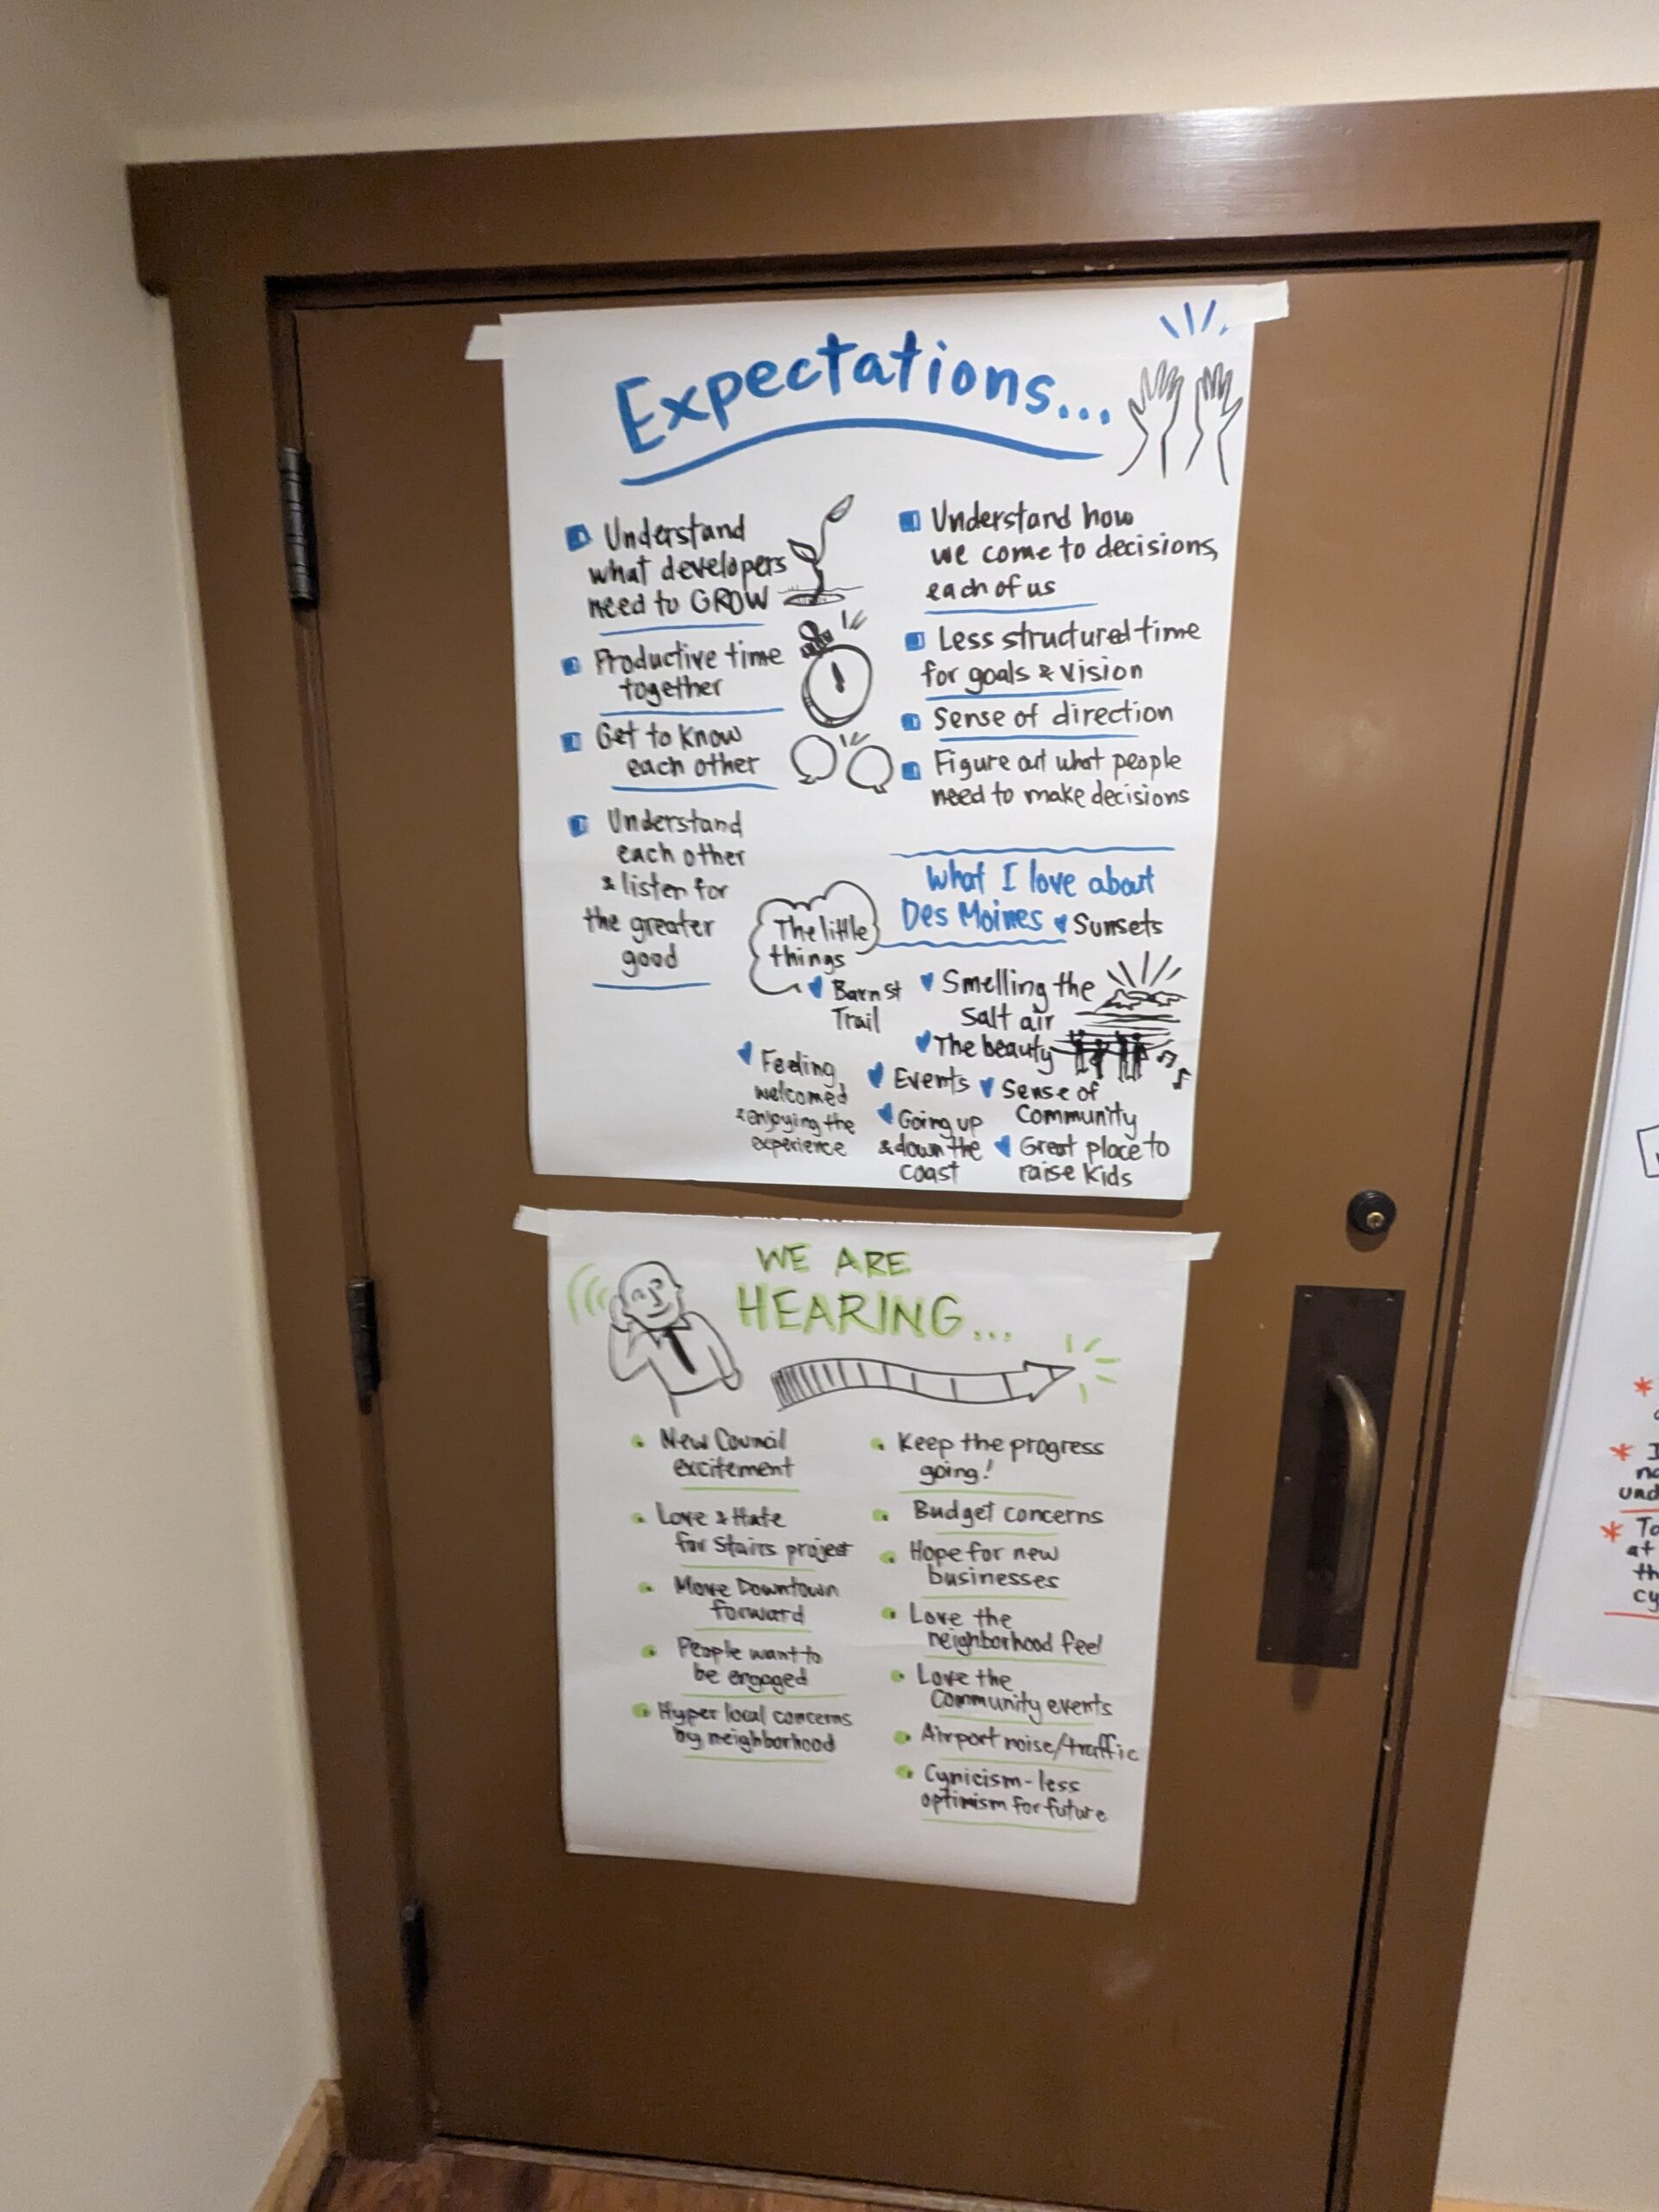 Expectations...
Understand
what developers
need to GROW
Productive time
together
Get to know
each other
Understand
each other
& listen for
the greater
good
Understand how
we come to decisions,
each of us
Less structured time
for goals & vision
Sense of direction
Figure out what people
need to make decisions
What I love about
Des Moines
Sunsets
The little
things
Barnst
Trail
Smelling the
Salt air
The beauty
Feeling
welcomed
& enjoying the
experience
Events
Going up
& down the
coast
Sense of
Community
Great place to
raise kids
WE ARE
HEARING...
New Council
excitement
Love & Hate
for Stairs project
Move Downtown
forward
People want to
be engaged
Hyper local concerns
by neighborhood
Keep the progress
going!
Budget concerns
Hope for new
businesses
Love the
neighborhood feel
Love the
Community events
Airport noise/traffic
Cynicism - less
optimism for future